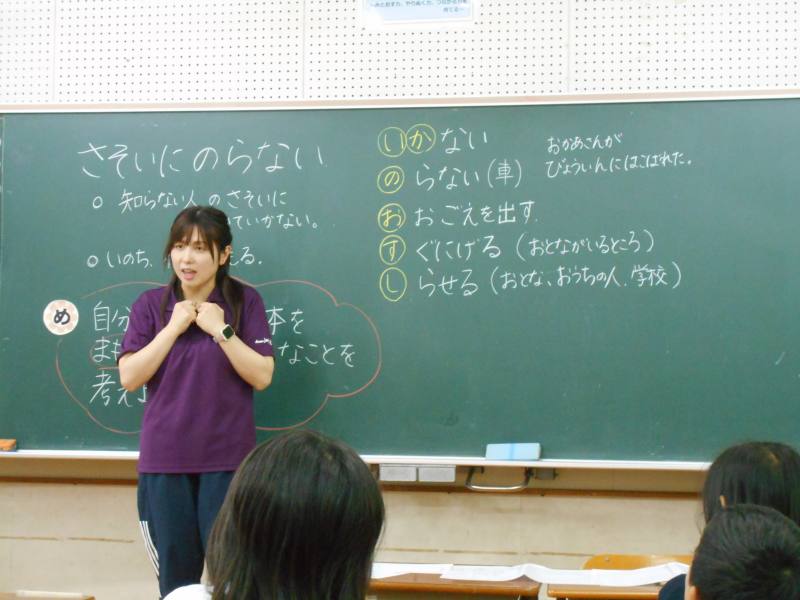 ～みたすた、やりぬく力、つながる力を
育てる～
さそいにのらない
○ 知らない人のさそいに
ていかない。
○ いのち、
る。
め
自分
体を
まも
なことを
考え
いかない
のらない（車）
おおごえを出す.
すぐにげる（おとながいるところ）
しらせる（おとな、おうちの人、学校）
おかあさんが
びょういんにはこばれた。